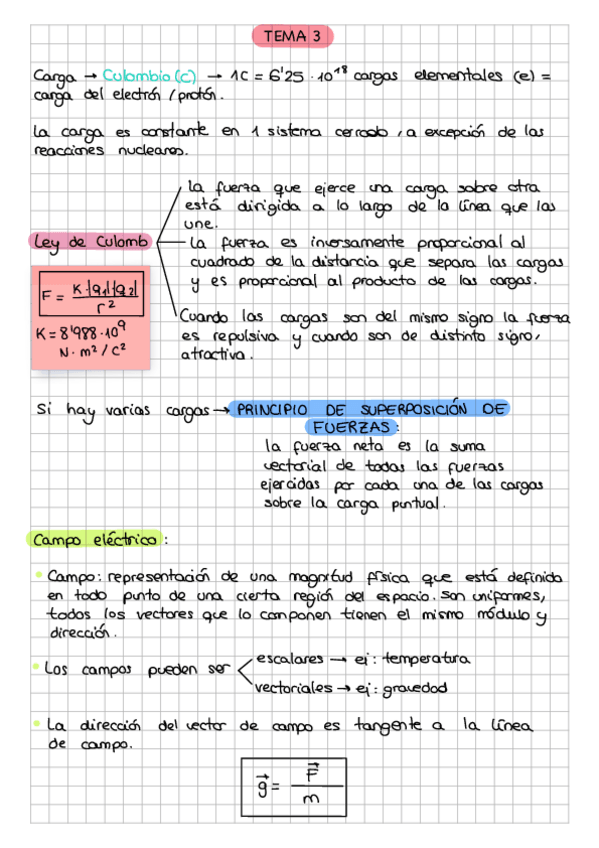 TEMA 3
Carga → Culombio (C) → 1C = 6'25 · 10¹⁸ cargas elementales (e) =
carga del electrón / protón.
La carga es constante en 1 sistema cerrado, a excepción de las
reacciones nucleares.
La fuerza que ejerce una carga sobre otra
está dirigida a lo largo de la línea que las
une.
Ley de Culomb
La fuerza es inversamente proporcional al
cuadrado de la distancia que separa las cargas
y es proporcional al producto de las cargas.
F = K·|q1|·|q2| / r²
K = 8'988·10⁹
N·m²/C²
Cuando las cargas son del mismo signo la fuerza
es repulsiva y cuando son de distinto signo,
atractiva.
Si hay varias cargas → PRINCIPIO DE SUPERPOSICIÓN DE
FUERZAS:
la fuerza neta es la suma
vectorial de todas las fuerzas
ejercidas por cada una de las cargas
sobre la carga puntual.
Campo eléctrico:
• Campo: representación de una magnitud física que está definida
en todo punto de una cierta región del espacio. Son uniformes,
todos los vectores que lo componen tienen el mismo módulo y
dirección.
• Los campos pueden ser
escalares → ej: temperatura
vectoriales → ej: gravedad
• La dirección del vector de campo es tangente a la línea
de campo.
g⃗ = F⃗ / m